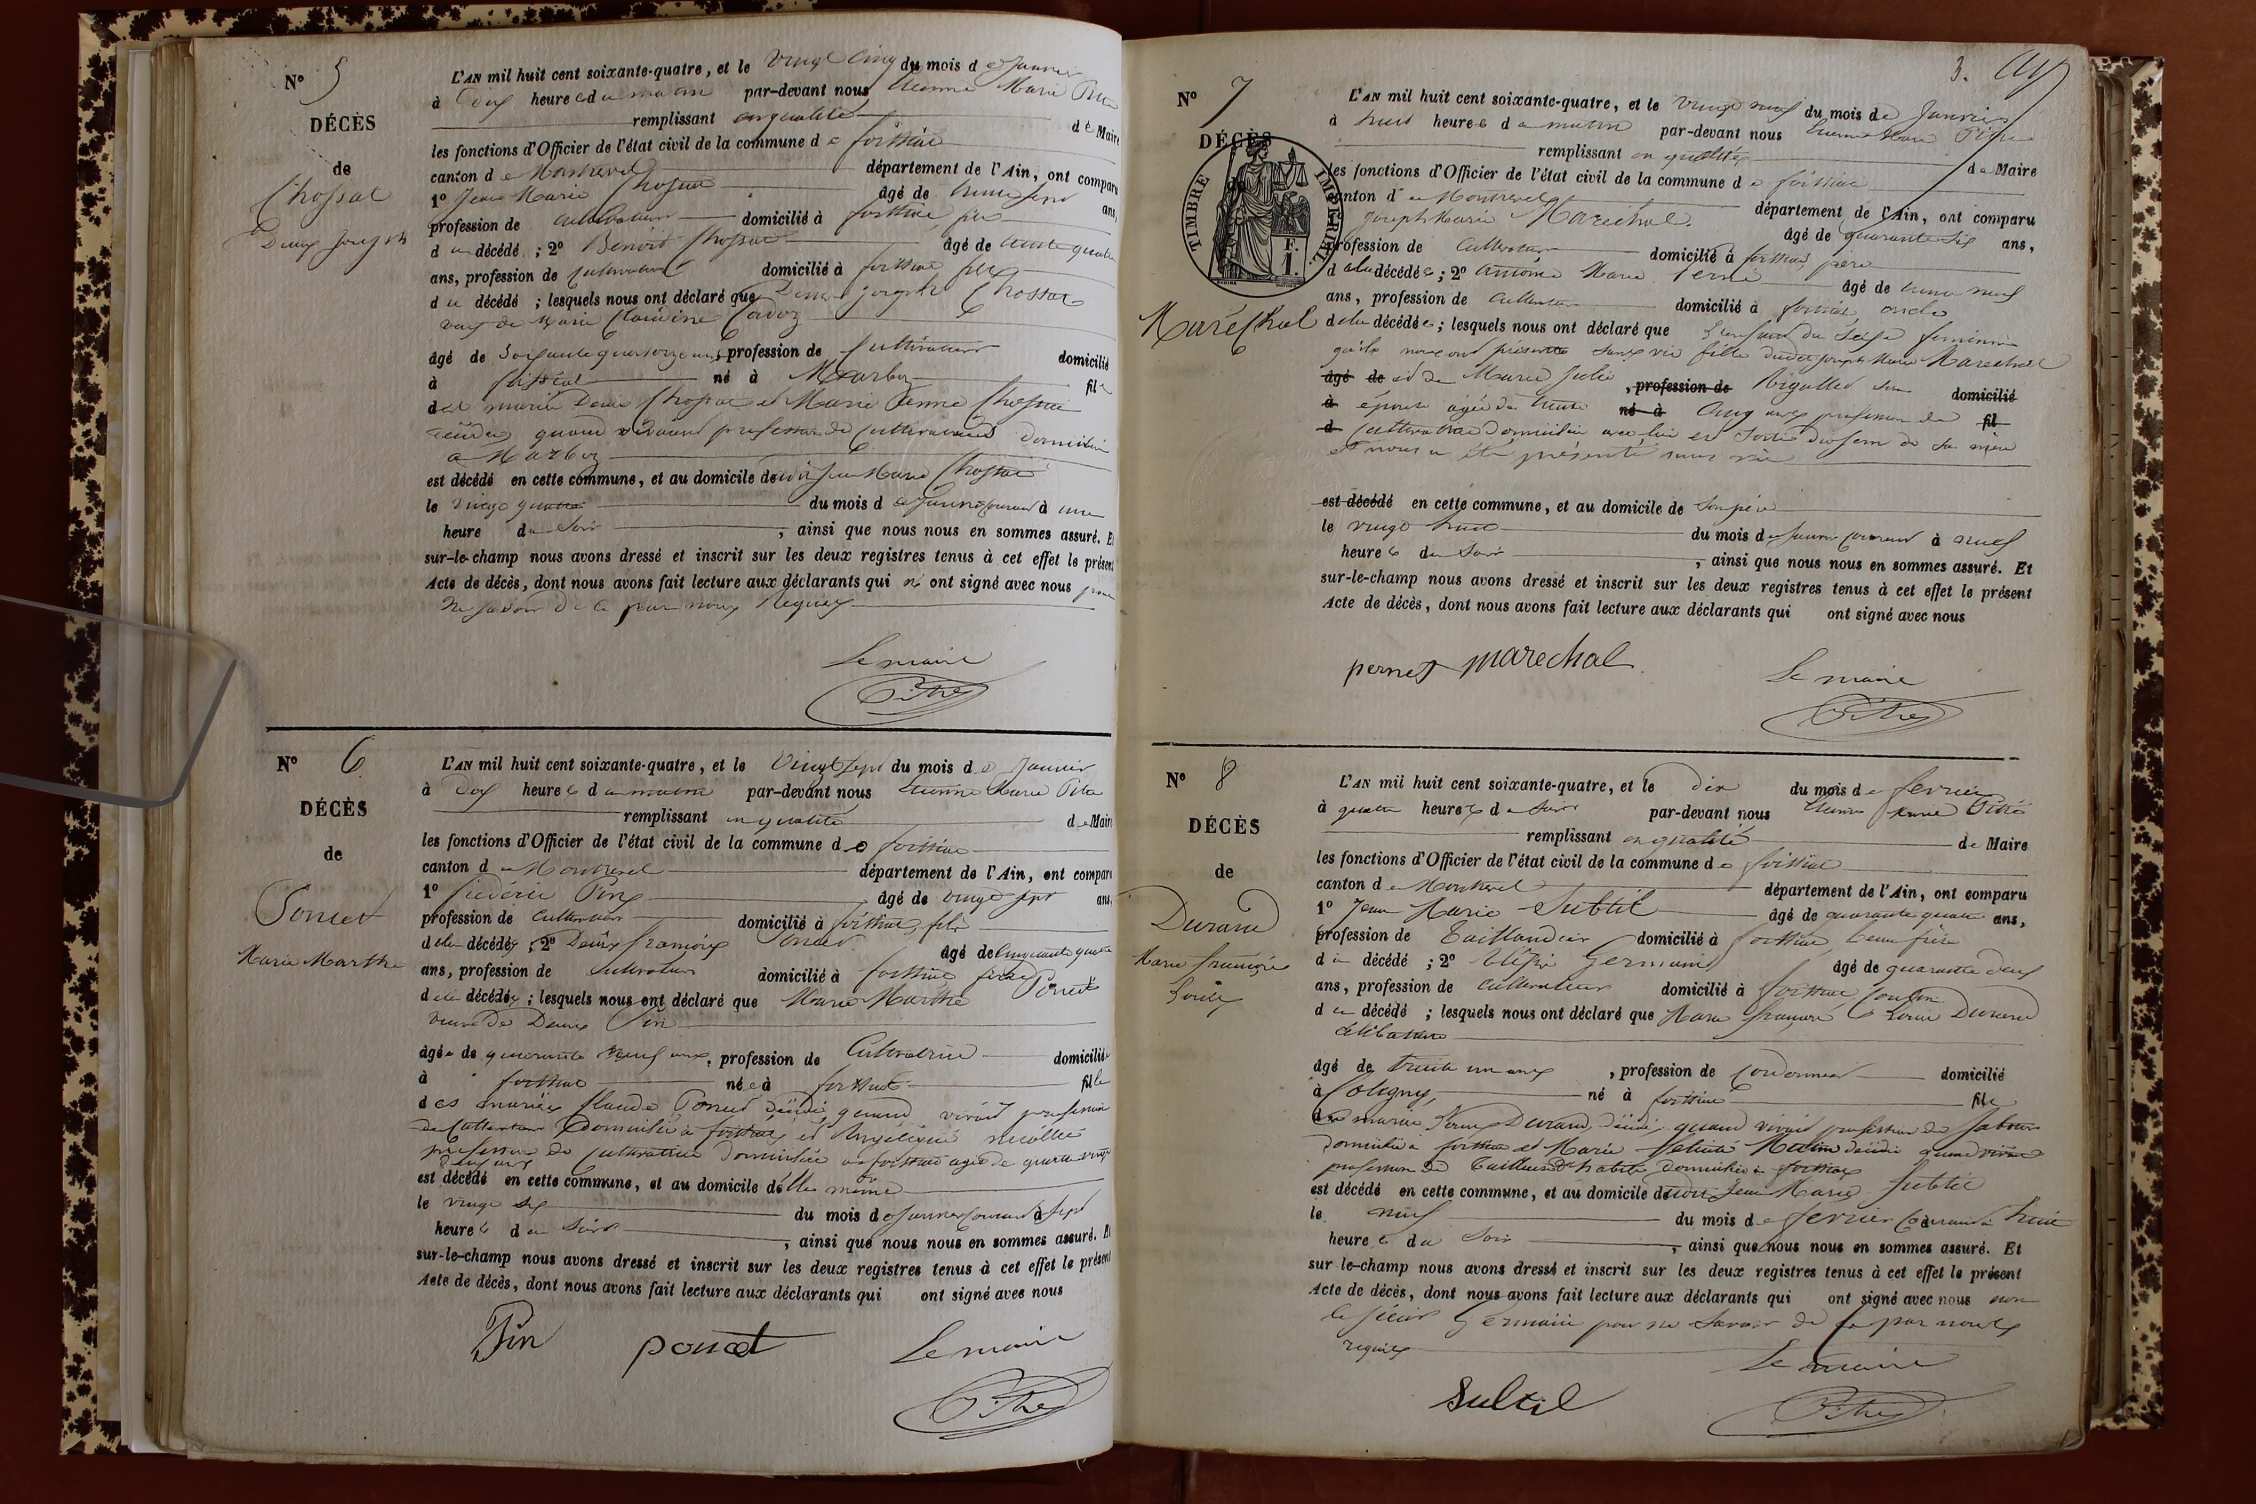 N° 5
DÉCÈS
de
Chossat
Denis Joseph
L'AN mil huit cent soixante-quatre, et le vingt cinq du mois de Janvier
à dix heures du matin par-devant nous Etienne Marie
remplissant en qualité de Maire
les fonctions d'Officier de l'état civil de la commune de foissiat
canton de Montrevel département de l'Ain, ont comparu
1° Jean Marie Chossat âgé de trente ans,
profession de cultivateur domicilié à foissiat
du décédé ; 2° Benoit Chossat âgé de trente quatre
ans, profession de cultivateur domicilié à foissiat fils
du décédé ; lesquels nous ont déclaré que Denis Joseph Chossat
veuf de Marie Claudine
âgé de Soixante quatorze ans, profession de Cultivateur domicilié
à foissiat né à Marboz fils
des mariés Denis Chossat et Marie
décédés quand vivaient profession de Cultivateurs domiciliés
à Marboz
est décédé en cette commune, et au domicile dudit Jean Marie Chossat
le vingt quatre du mois de Janvier courant à une
heure du Soir , ainsi que nous nous en sommes assuré. Et
sur-le-champ nous avons dressé et inscrit sur les deux registres tenus à cet effet le présent
Acte de décès, dont nous avons fait lecture aux déclarants qui n' ont signé avec nous pour
ne savoir de ce par nous requis
Le maire
N° 6
DÉCÈS
de
Poncet
Marie Marthe
L'AN mil huit cent soixante-quatre, et le vingt sept du mois de Janvier
à dix heures du matin par-devant nous Etienne Marie
remplissant en qualité de Maire
les fonctions d'Officier de l'état civil de la commune de foissiat
canton de Montrevel département de l'Ain, ont comparu
1° Frédéric Pin âgé de vingt sept ans,
profession de cultivateur domicilié à foissiat, fils
de la décédée ; 2° Denis François Poncet âgé de cinquante quatre
ans, profession de cultivateur domicilié à foissiat frère
de la décédée ; lesquels nous ont déclaré que Marie Marthe Poncet
veuve de Denis Pin
âgée de quarante neuf ans, profession de Cultivatrice domiciliée
à foissiat née à foissiat fille
des mariés Claude Poncet décédé, quand vivait profession
de Cultivateur domicilié à foissiat et Angélique
profession de cultivatrice domiciliée à foissiat agée de quatre vingt
deux ans
est décédé en cette commune, et au domicile d'elle même
le vingt six du mois de Janvier courant à sept
heures du Soir , ainsi que nous nous en sommes assuré. Et
sur-le-champ nous avons dressé et inscrit sur les deux registres tenus à cet effet le présent
Acte de décès, dont nous avons fait lecture aux déclarants qui ont signé avec nous
Pin poncet Le maire
3.
N° 7
DÉCÈS
TIMBRE IMPÉRIAL
1 F.
Maréchal
L'AN mil huit cent soixante-quatre, et le vingt neuf du mois de Janvier
à huit heures du matin par-devant nous Etienne Marie
remplissant en qualité de Maire
les fonctions d'Officier de l'état civil de la commune de foissiat
canton de Montrevel département de l'Ain, ont comparu
Joseph Marie Maréchal âgé de quarante six ans,
profession de Cultivateur domicilié à foissiat, père
de la décédée ; 2° Antoine Marie âgé de trente neuf
ans, profession de Cultivateur domicilié à foissiat, oncle
de la décédée ; lesquels nous ont déclaré que l'enfant du Sexe féminin
qu'ils nous ont présenté sans vie fille dudit Joseph Marie Maréchal
âgé de et de Marie Julie , profession de son domicilié
à épouse agée de trente né à cinq ans profession de fil
d cultivatrice domiciliée avec lui est sortie du sein de sa mère
et nous a été présenté sans vie
est décédé en cette commune, et au domicile de son père
le vingt huit du mois de Janvier courant à neuf
heures du Soir , ainsi que nous nous en sommes assuré. Et
sur-le-champ nous avons dressé et inscrit sur les deux registres tenus à cet effet le présent
Acte de décès, dont nous avons fait lecture aux déclarants qui ont signé avec nous
pernet marechal Le maire
N° 8
DÉCÈS
de
Durand
Marie françois
Louis
L'AN mil huit cent soixante-quatre, et le dix du mois de fevrier
à quatre heures du Soir par-devant nous Etienne Marie
remplissant en qualité de Maire
les fonctions d'Officier de l'état civil de la commune de foissiat
canton de Montrevel département de l'Ain, ont comparu
1° Jean Marie Subtil âgé de quarante quatre ans,
profession de Taillandier domicilié à foissiat beau frère
du décédé ; 2° Germain âgé de quarante deux
ans, profession de Cultivateur domicilié à foissiat cousin
du décédé ; lesquels nous ont déclaré que Marie françois Louis Durand
célibataire
âgé de trente un ans , profession de Cordonnier domicilié
à Coligny, né à foissiat fils
des mariés Durand, décédé, quand vivait profession de
domicilié à foissiat et Marie décédée quand vivait
profession de Tailleuse d'habits domiciliée à foissiat
est décédé en cette commune, et au domicile dudit Jean Marie Subtil
le neuf du mois de fevrier courant à huit
heures du Soir , ainsi que nous nous en sommes assuré. Et
sur-le-champ nous avons dressé et inscrit sur les deux registres tenus à cet effet le présent
Acte de décès, dont nous avons fait lecture aux déclarants qui ont signé avec nous non
le sieur Germain pour ne savoir de ce par nous
requis
Le maire
Subtil